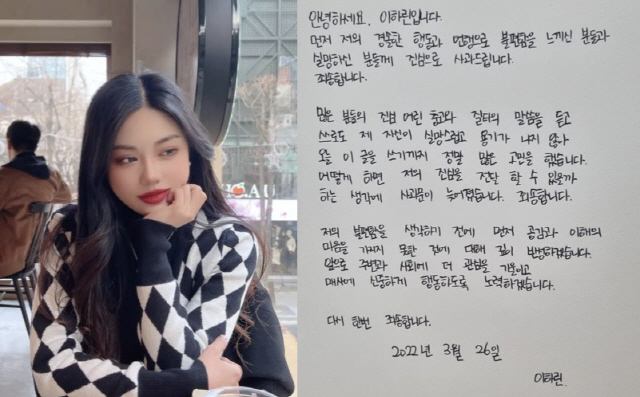 안녕하세요. 이하린입니다.
먼저 저의 경솔한 행동과 언행으로 불편함을 느끼신 분들과
실망하신 분들께 진심으로 사과드립니다.
죄송합니다.
많은 분들의 진심 어린 충고와 질타의 말씀을 듣고
스스로도 제 자신이 실망스럽고 용기가 나지 않아
오늘 이 글을 쓰기까지 정말 많은 고민을 했습니다.
어떻게 하면 저의 진심을 전달 할 수 있을까
하는 생각에 사과문이 늦어졌습니다. 죄송합니다.
저의 불편함을 생각하기 전에 먼저 공감과 이해의
마음을 가지지 못한 점에 대해 깊이 반성하겠습니다.
앞으로 주변과 사회에 더 관심을 기울이고
매사에 신중하게 행동하도록 노력하겠습니다.
다시 한번 죄송합니다.
2022년 3월 26일
이하린.